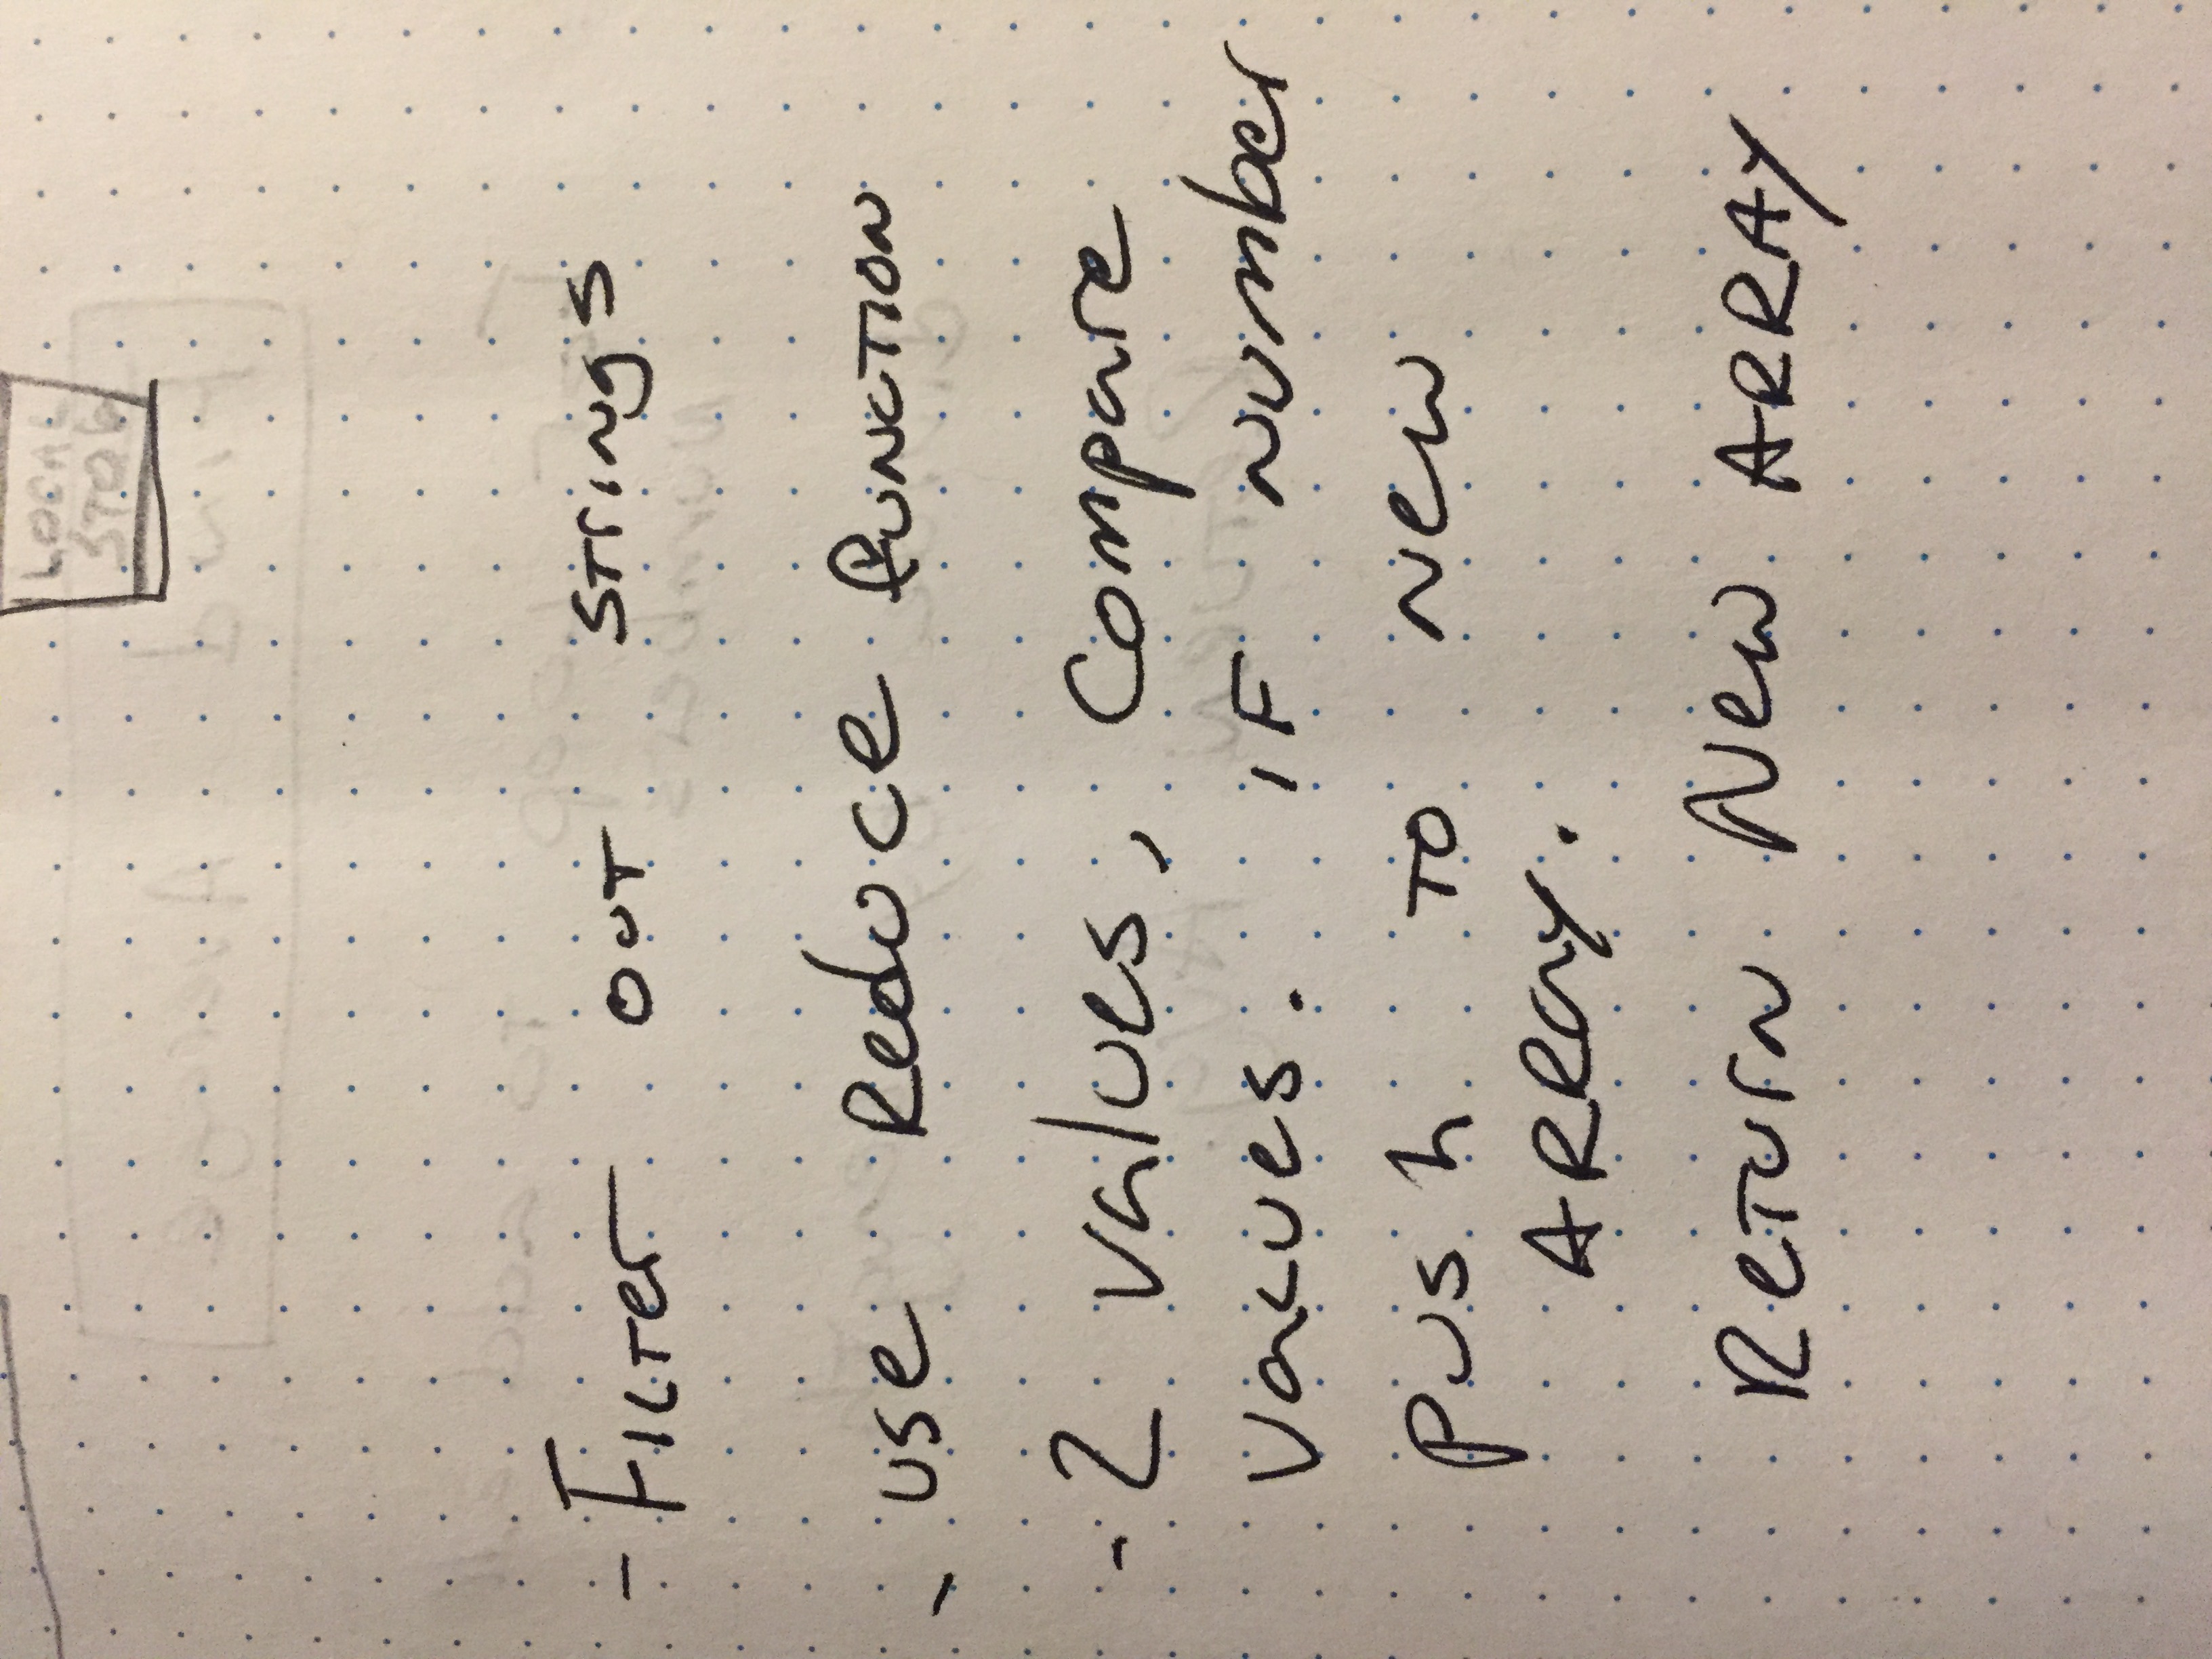 LOCAL
STOG
- Filter out strings
- use Reduce function
- 2 values, Compare
values. if number
push to new
ARRay.
Return New ARRAY